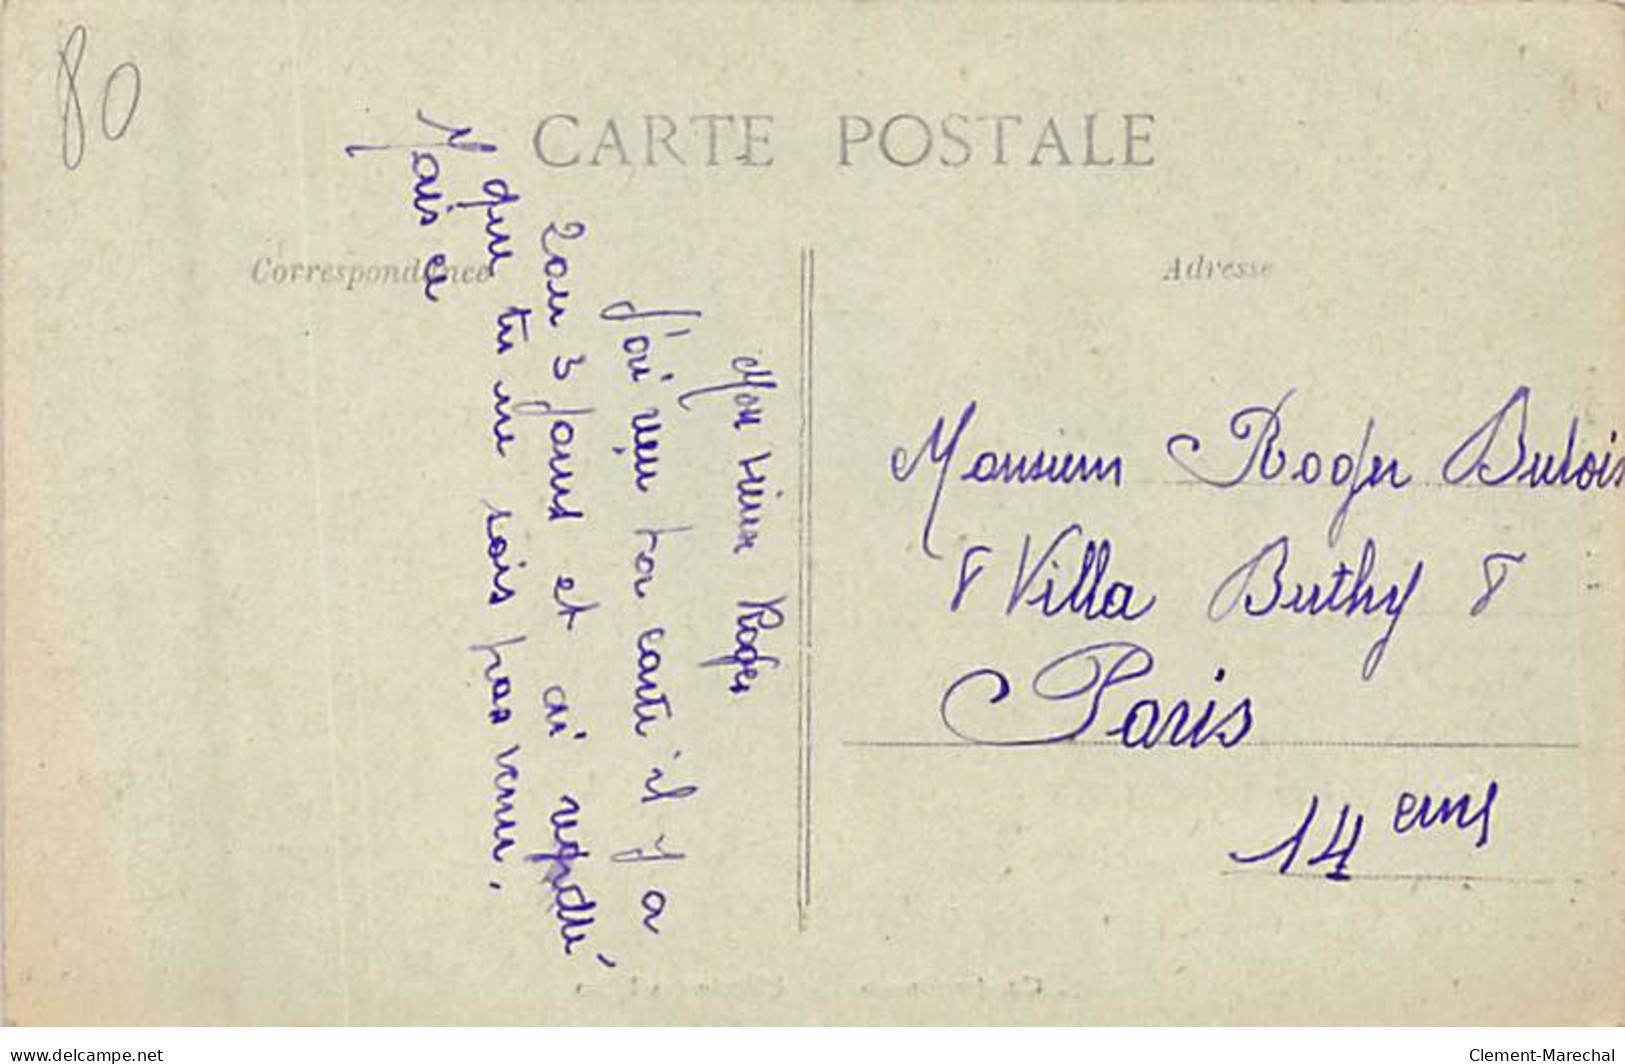 80
CARTE POSTALE
Correspondance
Adresse
Mon vieux Roger
J'ai reçu ta carte il y a
2 ou 3 jours et ai
que tu ne sois pas venu.
Mais ce
Monsieur Roger Butois
8 Villa Buthy 8
Paris
14 eme
www.delcampe.net
Clement-Marechal